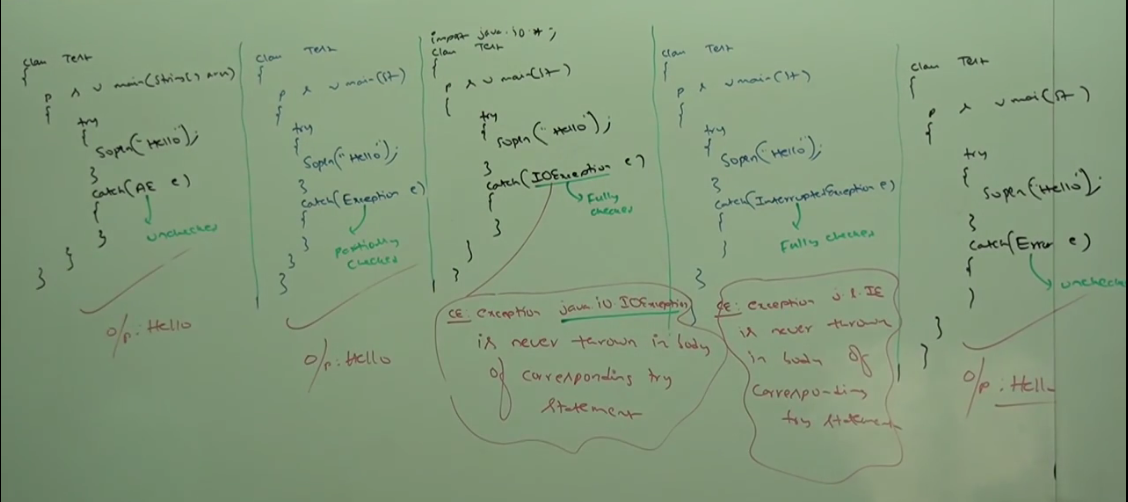 class Test
{
p s v main(String[] args)
{
try
{
Sopln("Hello");
}
catch(AE e)
{
unchecked
}
}
}
O/p: Hello
class Test
{
p s v main(St)
{
try
{
Sopln("Hello");
}
catch(Exception e)
{
partially
checked
}
}
}
O/p: Hello
import java.io.*;
class Test
{
p s v main(St)
{
try
{
Sopln("Hello");
}
catch(IOException e)
{
Fully
checked
}
}
}
CE: exception java.io.IOException
is never thrown in body
of corresponding try
statement
class Test
{
p s v main(St)
{
try
{
Sopln("Hello");
}
catch(InterruptedException e)
{
Fully checked
}
}
CE: exception j.l.IE
is never thrown
in body of
corresponding
try statement
class Test
{
p s v main(St)
{
try
{
Sopln("Hello");
}
catch(Error e)
{
unchecked
}
}
}
O/p: Hello